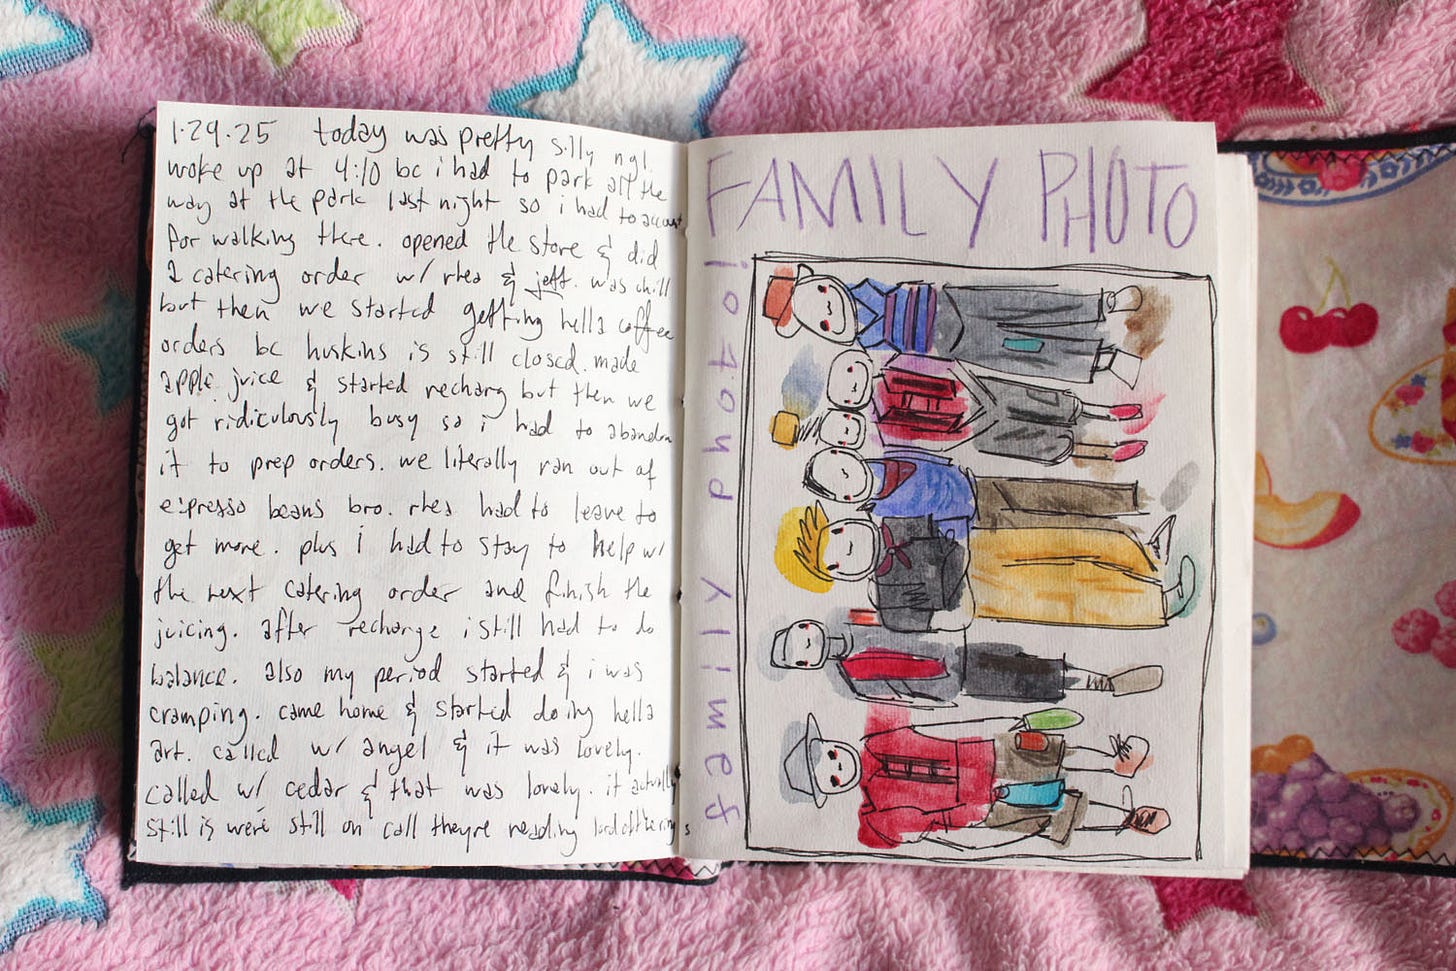 1.29.25 today was pretty silly ngl.
woke up at 4:10 bc i had to park all the
way at the park last night so i had to account
for walking there. opened the store & did
2 catering order w/ rhea & jeff. was chill
but then we started getting hella coffee
orders bc huskins is still closed. made
apple juice & started recharg but then we
got ridiculously busy so i had to abandon
it to prep orders. we literally ran out of
espresso beans bro. rhea had to leave to
get more. plus i had to stay to help w/
the next catering order and finish the
juicing. after recharge i still had to do
balance. also my period started & i was
cramping. came home & started doing hella
art. called w/ angel & it was lovely.
called w/ cedar & that was lovely. it actually
still is we're still on call theyre reading lord of the rings
FAMILY PHOTO
family photo!